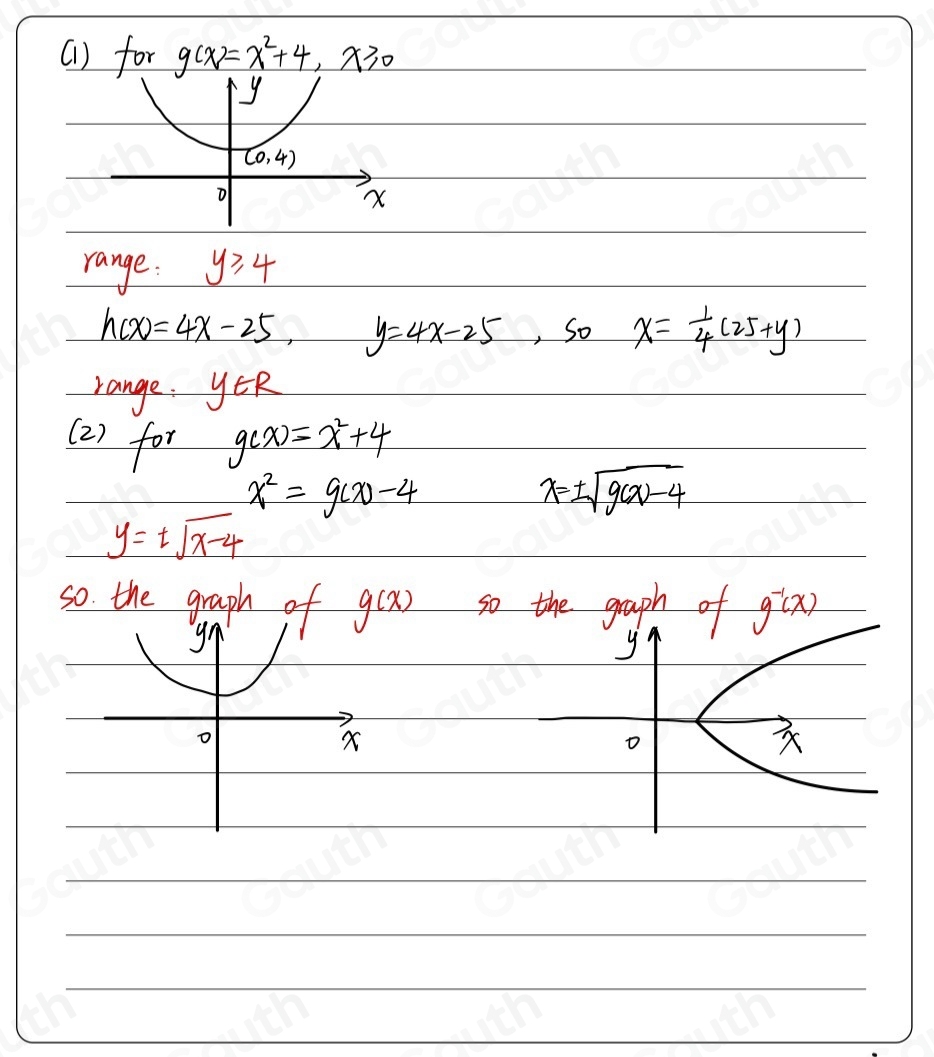 (1) for g(x)=x²+4, x≥0
y
(0,4)
0
x
range: y≥4
h(x)=4x-25, y=4x-25, so x=¼(25+y)
range: y∈R
(2) for g(x)=x²+4
x²=g(x)-4 x=±√(g(x)-4)
y=±√(x-4)
so. the graph of g(x) so the graph of g⁻¹(x)
y y
0 x 0 x
Gauth